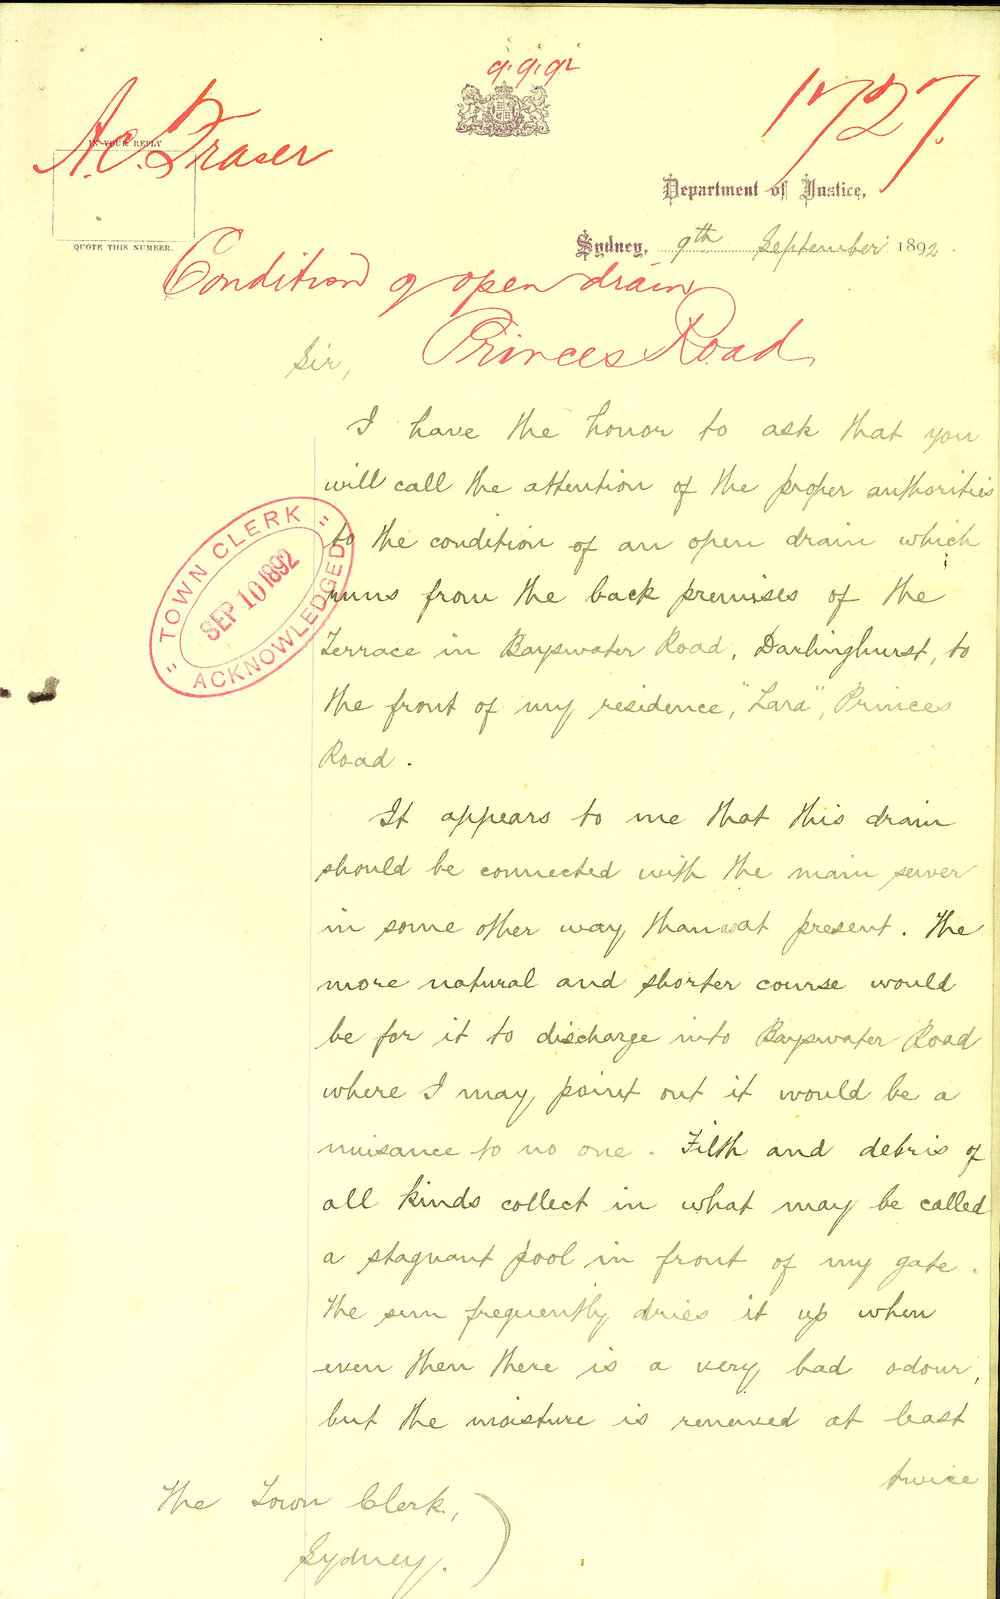 9.9.92
A.C. Fraser
1727.
IN YOUR REPLY
QUOTE THIS NUMBER.
Department of Justice,
Sydney, 9th September 1892.
Condition of open drain
Princes Road
Sir,
I have the honor to ask that you
will call the attention of the proper authorities
to the condition of an open drain which
runs from the back premises of the
Terrace in Bayswater Road, Darlinghurst, to
the front of my residence, "Lara", Princes
Road.
" TOWN CLERK "
SEP 10 1892
ACKNOWLEDGED
It appears to me that this drain
should be connected with the main sewer
in some other way than as at present. The
more natural and shorter course would
be for it to discharge into Bayswater Road
where I may point out it would be a
nuisance to no one. Filth and debris of
all kinds collect in what may be called
a stagnant pool in front of my gate.
The sun frequently dries it up when
even then there is a very bad odour,
but the moisture is renewed at least
twice
The Town Clerk,
Sydney.